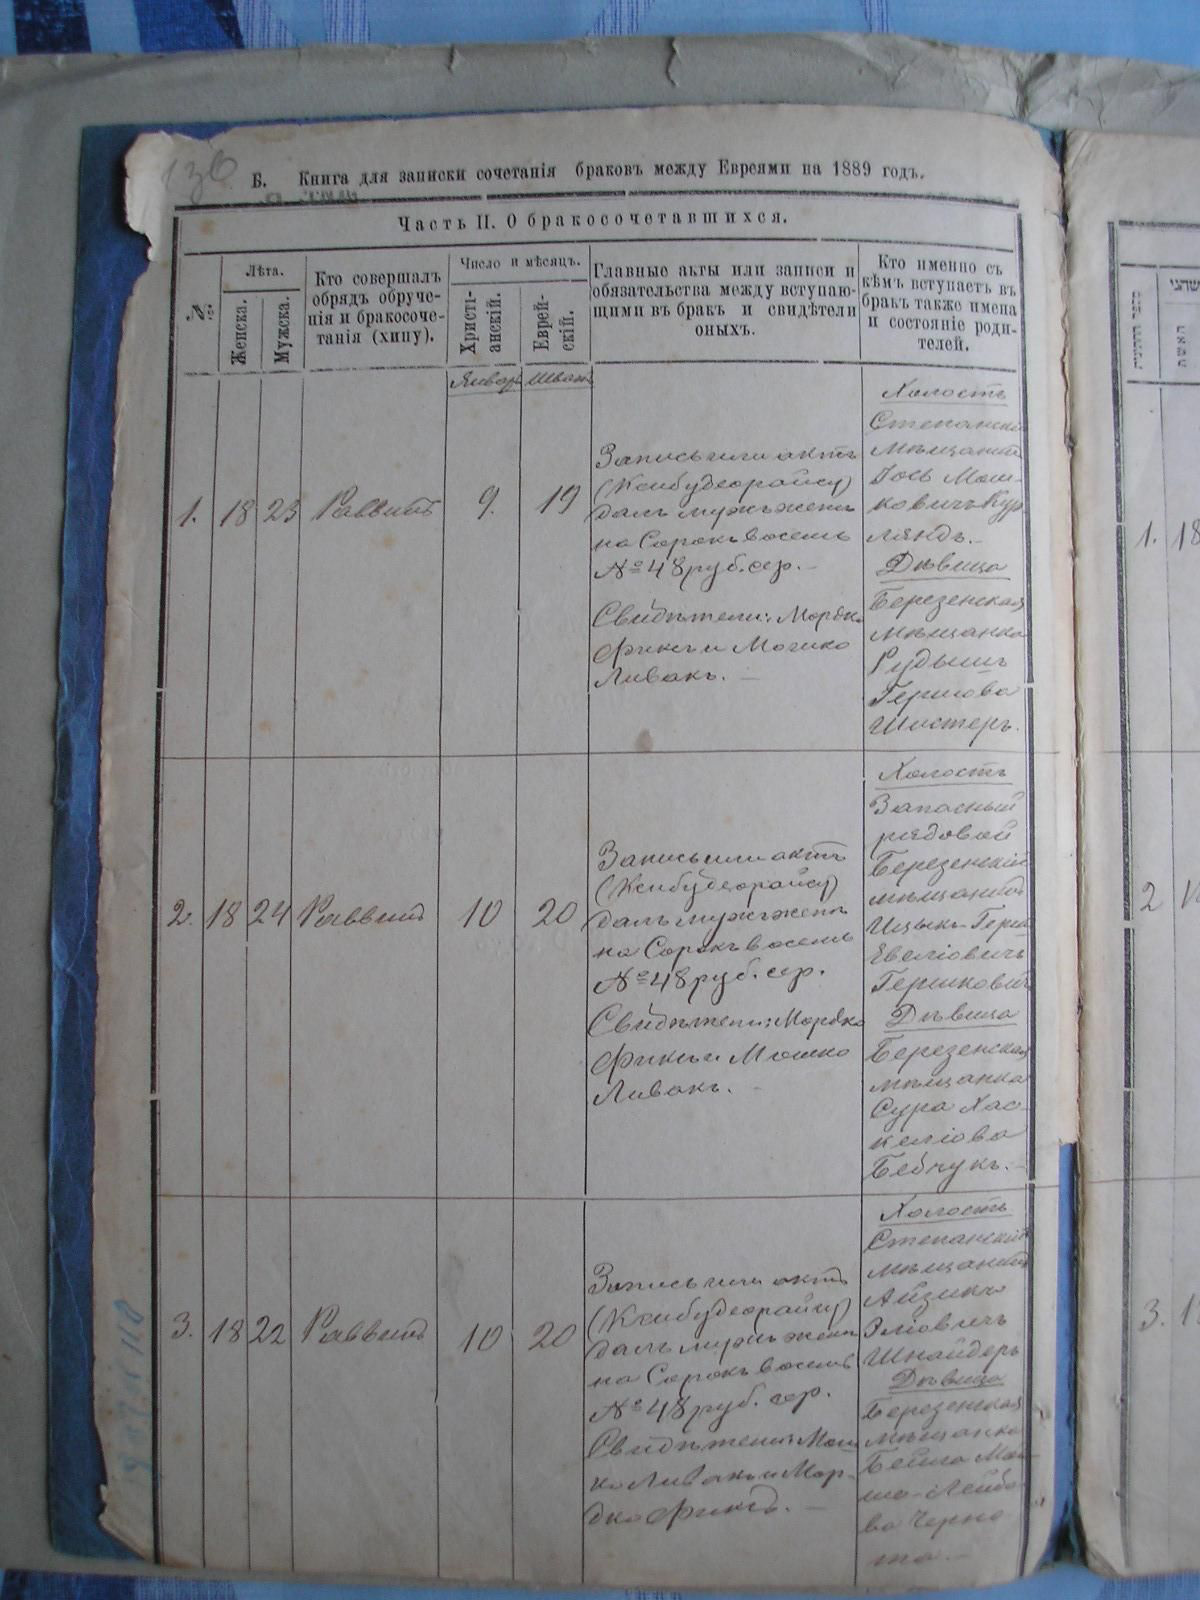 136
Б. Книга для записки сочетанія браковъ между Евреями на 1889 годъ.
Часть II. О бракосочетавшихся.
№
Лѣта.
Женска.
Мужска.
Кто совершалъ
обрядъ обруче-
нія и бракосоче-
танія (хипу).
Число и мѣсяцъ.
Христі-
анскій.
Еврей-
скій.
Главные акты или записи и
обязательства между вступаю-
щими въ бракъ и свидѣтели
оныхъ.
Кто именно съ
кѣмъ вступаетъ въ
бракъ также имена
и состояніе роди-
телей.
Январь Шватъ
1. 18 23 Раввинъ 9. 19
Запись или актъ
(Ксибудеорайсу)
далъ мужъ женѣ
на Сорокъ восемь
№ 48 руб. сер. —
Свидѣтели: Мордко
Фиксъ и Мошко
Ливакъ. —
Холостъ
Степанскій
мѣщанинъ
Іось Мош-
ковичъ Кур
ляндъ. —
Дѣвица
Березенская
мѣщанка
Рудышъ
Гершова
Шостеръ.
2. 18 24 Раввинъ 10 20
Запись или актъ
(Ксибудеорайсу)
далъ мужъ женѣ
на Сорокъ восемь
№ 48 руб. сер.
Свидѣтели: Мордко
Фиксъ и Мошко
Ливакъ. —
Холостъ
Запасный
рядовой
Березенскій
мѣщанинъ
Ицыкъ-Герш
Евеліовичъ
Гершковичъ
Дѣвица
Березенская
мѣщанка
Сура Хас-
келіова
Бебчукъ. —
3. 18 22 Раввинъ 10 20
Запись или актъ
(Ксибудеорайсу)
далъ мужъ женѣ
на Сорокъ восемь
№ 48 руб. сер.
Свидѣтели: Мош
ко Ливакъ и Мор-
дко Фиксъ. —
Холостъ
Степанскій
мѣщанинъ
Айзикъ
Эліовичъ
Шнайдеръ
Дѣвица
Березенская
мѣщанка
Бейла Мош-
ко-Лейбо-
ва Черно
та. —
האשה
1. 18
2
3. 1